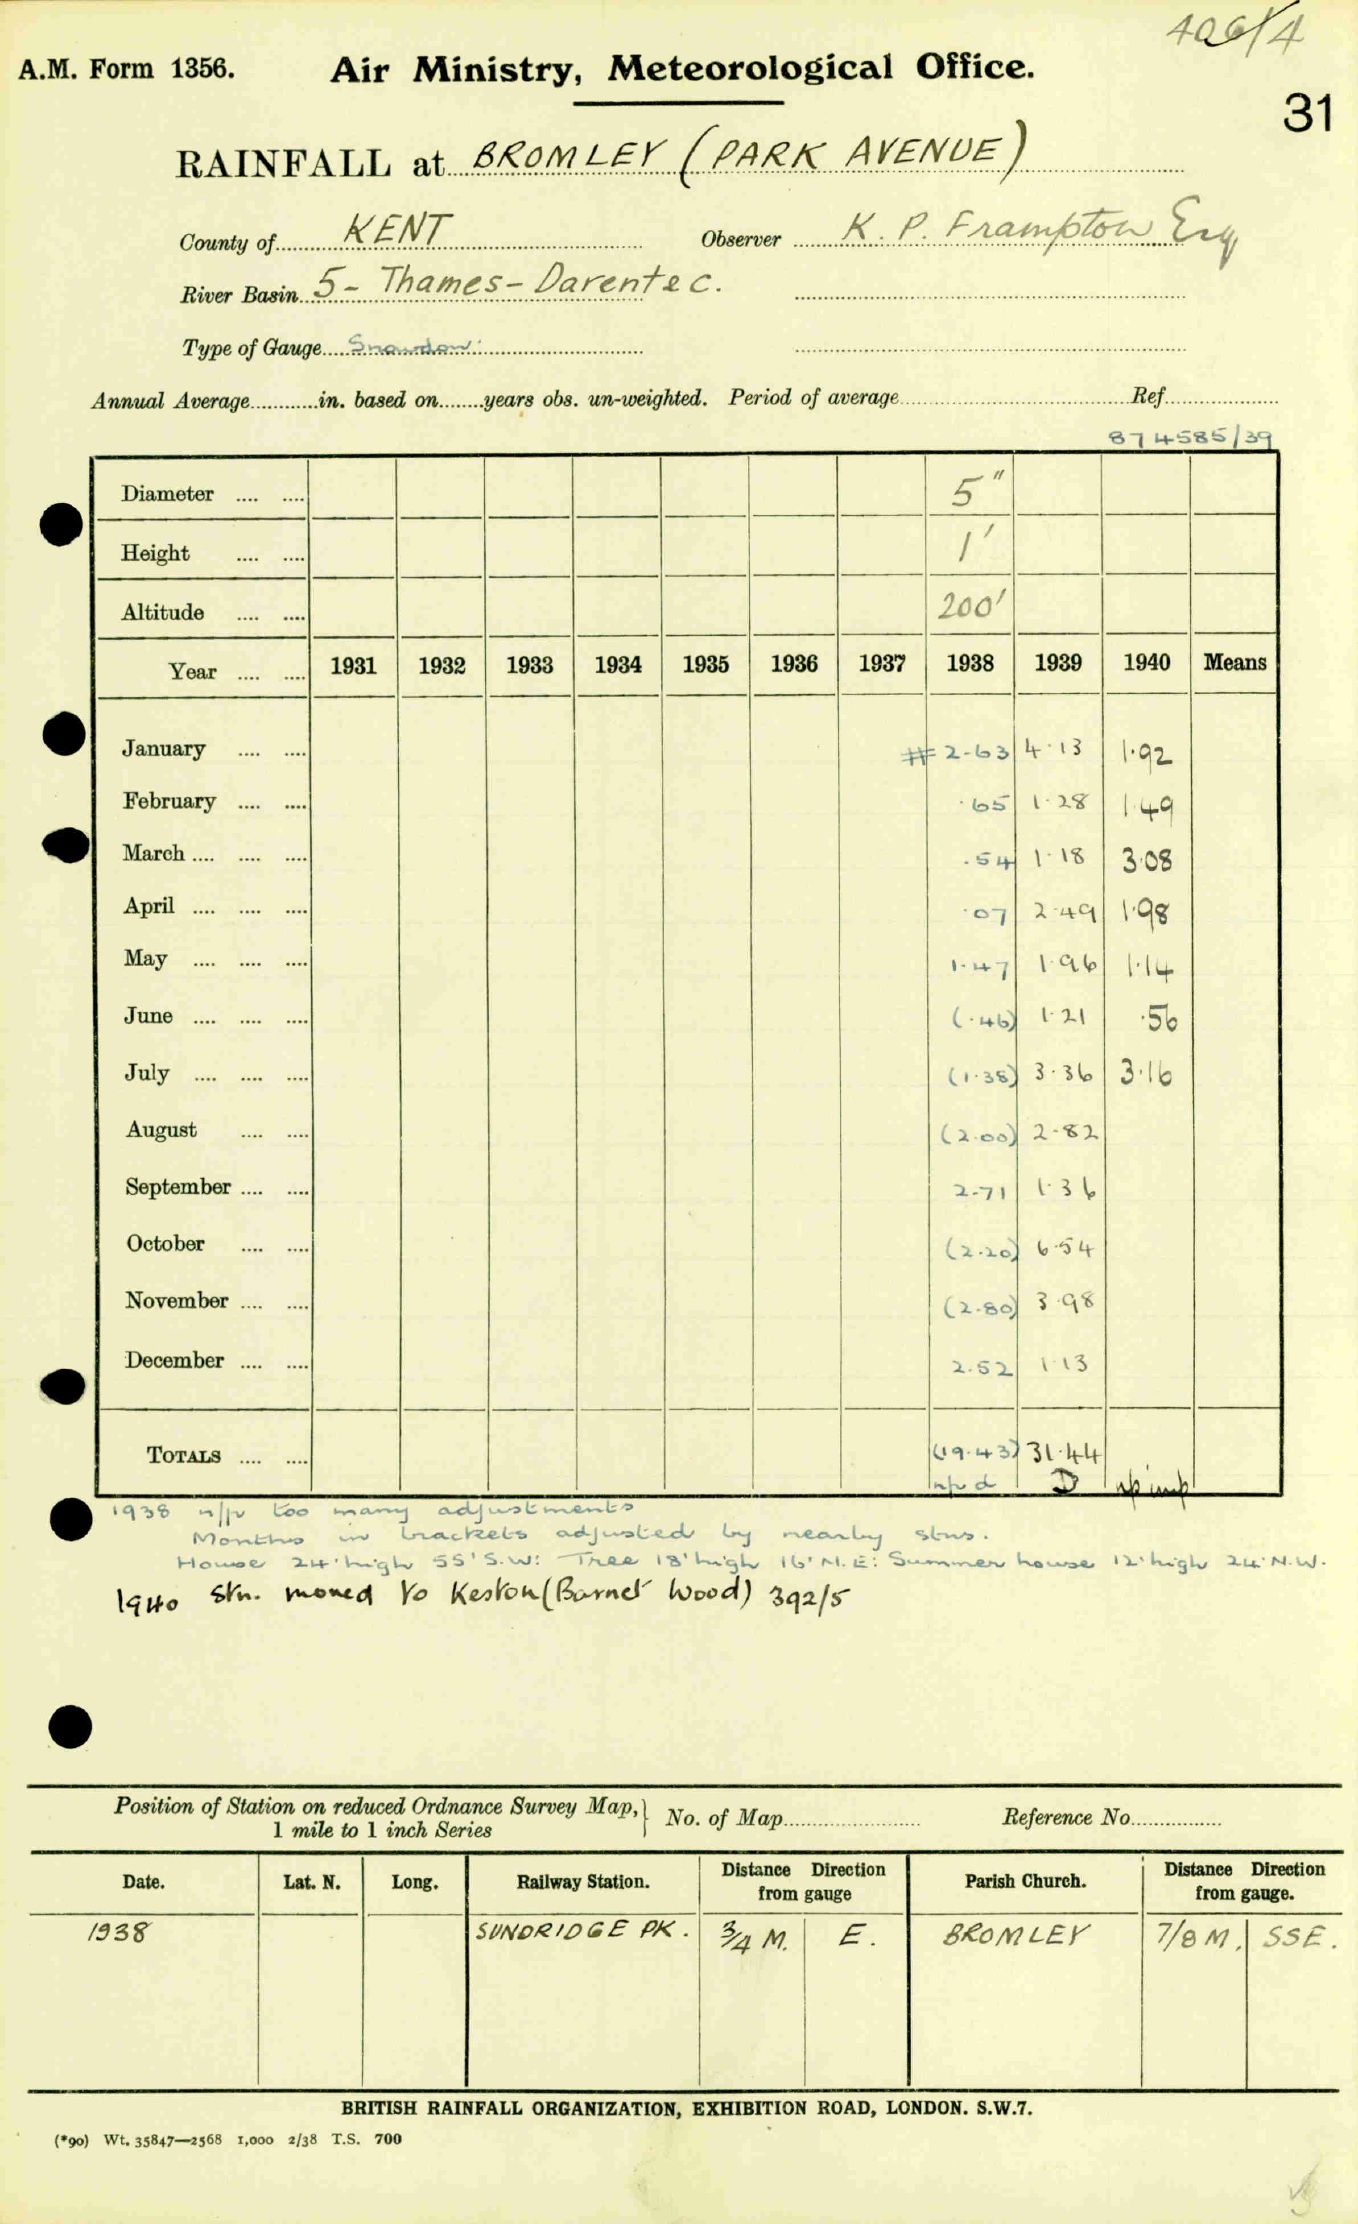 406/4
A.M. Form 1356.
Air Ministry, Meteorological Office.
31
RAINFALL at BROMLEY (PARK AVENUE)
County of KENT Observer K. P. Frampton Esq
River Basin 5 - Thames - Darent e c.
Type of Gauge Snowdon.
Annual Average............in. based on........years obs. un-weighted. Period of average.............Ref.............
874585/39
Diameter .... .... 5"
Height .... .... 1'
Altitude .... .... 200'
Year .... .... 1931 1932 1933 1934 1935 1936 1937 1938 1939 1940 Means
January .... .... # 2.63 4.13 1.92
February .... .... .65 1.28 1.49
March .... .... .... .54 1.18 3.08
April .... .... .... .07 2.49 1.98
May .... .... .... 1.47 1.96 1.14
June .... .... .... (.46) 1.21 .56
July .... .... .... (1.38) 3.36 3.16
August .... .... (2.00) 2.82
September .... .... 2.71 1.36
October .... .... (2.20) 6.54
November .... .... (2.80) 3.98
December .... .... 2.52 1.13
TOTALS .... .... (19.43) 31.44
n/p d D
1938 n/p too many adjustments
Months in brackets adjusted by nearby stns.
House 24' high 55' S.W: Tree 18' high 16' N.E: Summer house 12' high 24' N.W.
1940 Stn. moved to Keston (Barnet Wood) 392/5
Position of Station on reduced Ordnance Survey Map, 1 mile to 1 inch Series } No. of Map............ Reference No............
Date. Lat. N. Long. Railway Station. Distance Direction from gauge Parish Church. Distance Direction from gauge.
1938 SUNDRIDGE PK. 3/4 M. E. BROMLEY 7/8 M. SSE.
BRITISH RAINFALL ORGANIZATION, EXHIBITION ROAD, LONDON. S.W.7.
(*90) Wt. 35847—2568 1,000 2/38 T.S. 700